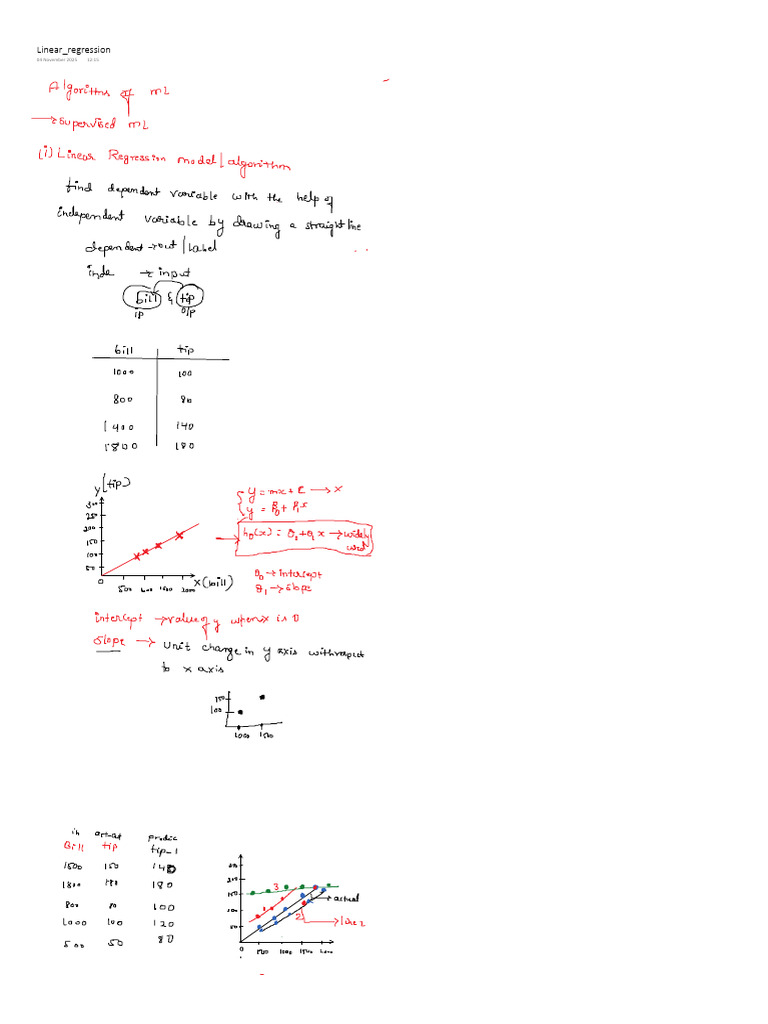 Linear_regression
04 November 2025 12:15
Algorithms of ML
→ Supervised ML
(i) Linear Regression model/algorithm
find dependent variable with the help of
independent variable by drawing a straight line
dependent → out/label
inde → input
bill & tip
ip o/p
bill tip
1000 100
800 80
1400 140
1800 180
y(tip)
300
250
200
150
100
50
0
500 1000 1500 2000 x(bill)
y = mx + c → x
y = β0 + β1x
hθ(x) = θ0 + θ1 x → widely
used
θ0 → intercept
θ1 → slope
intercept → value of y when x is 0
Slope → Unit change in y axis with respect
to x axis
150
100
1000 1500
in actual predic
Bill tip tip_1
1500 150 140
1800 180 180
800 80 100
1000 100 120
500 50 80
200
150
100
50
0
500 1000 1500 2000
3
2
→ actual
→ line 2